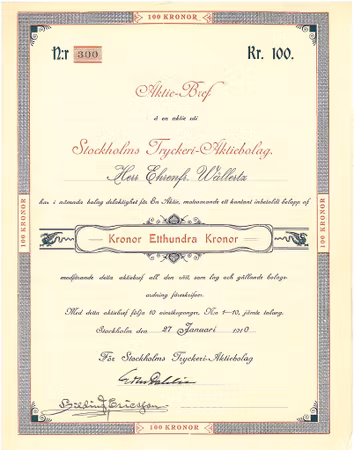 100 KRONOR
N:r 300 Kr. 100.
Aktie-Bref
å en aktie uti
Stockholms Tryckeri-Aktiebolag.
Herr Ehrenfr. Wallertz
har i nämnda bolag delaktighet för En Aktie, motsvarande ett kontant inbetaldt belopp af
Kronor Etthundra Kronor
medförande detta aktiebref all den rätt, som lag och gällande bolags-
ordning föreskrifver.
Med detta aktiebref följa 10 vinstkuponger, N:o 1—10, jämte talong.
Stockholm den 27 Januari 1910
För Stockholms Tryckeri-Aktiebolag
Ericsson
100 KRONOR
100 KRONOR
100 KRONOR